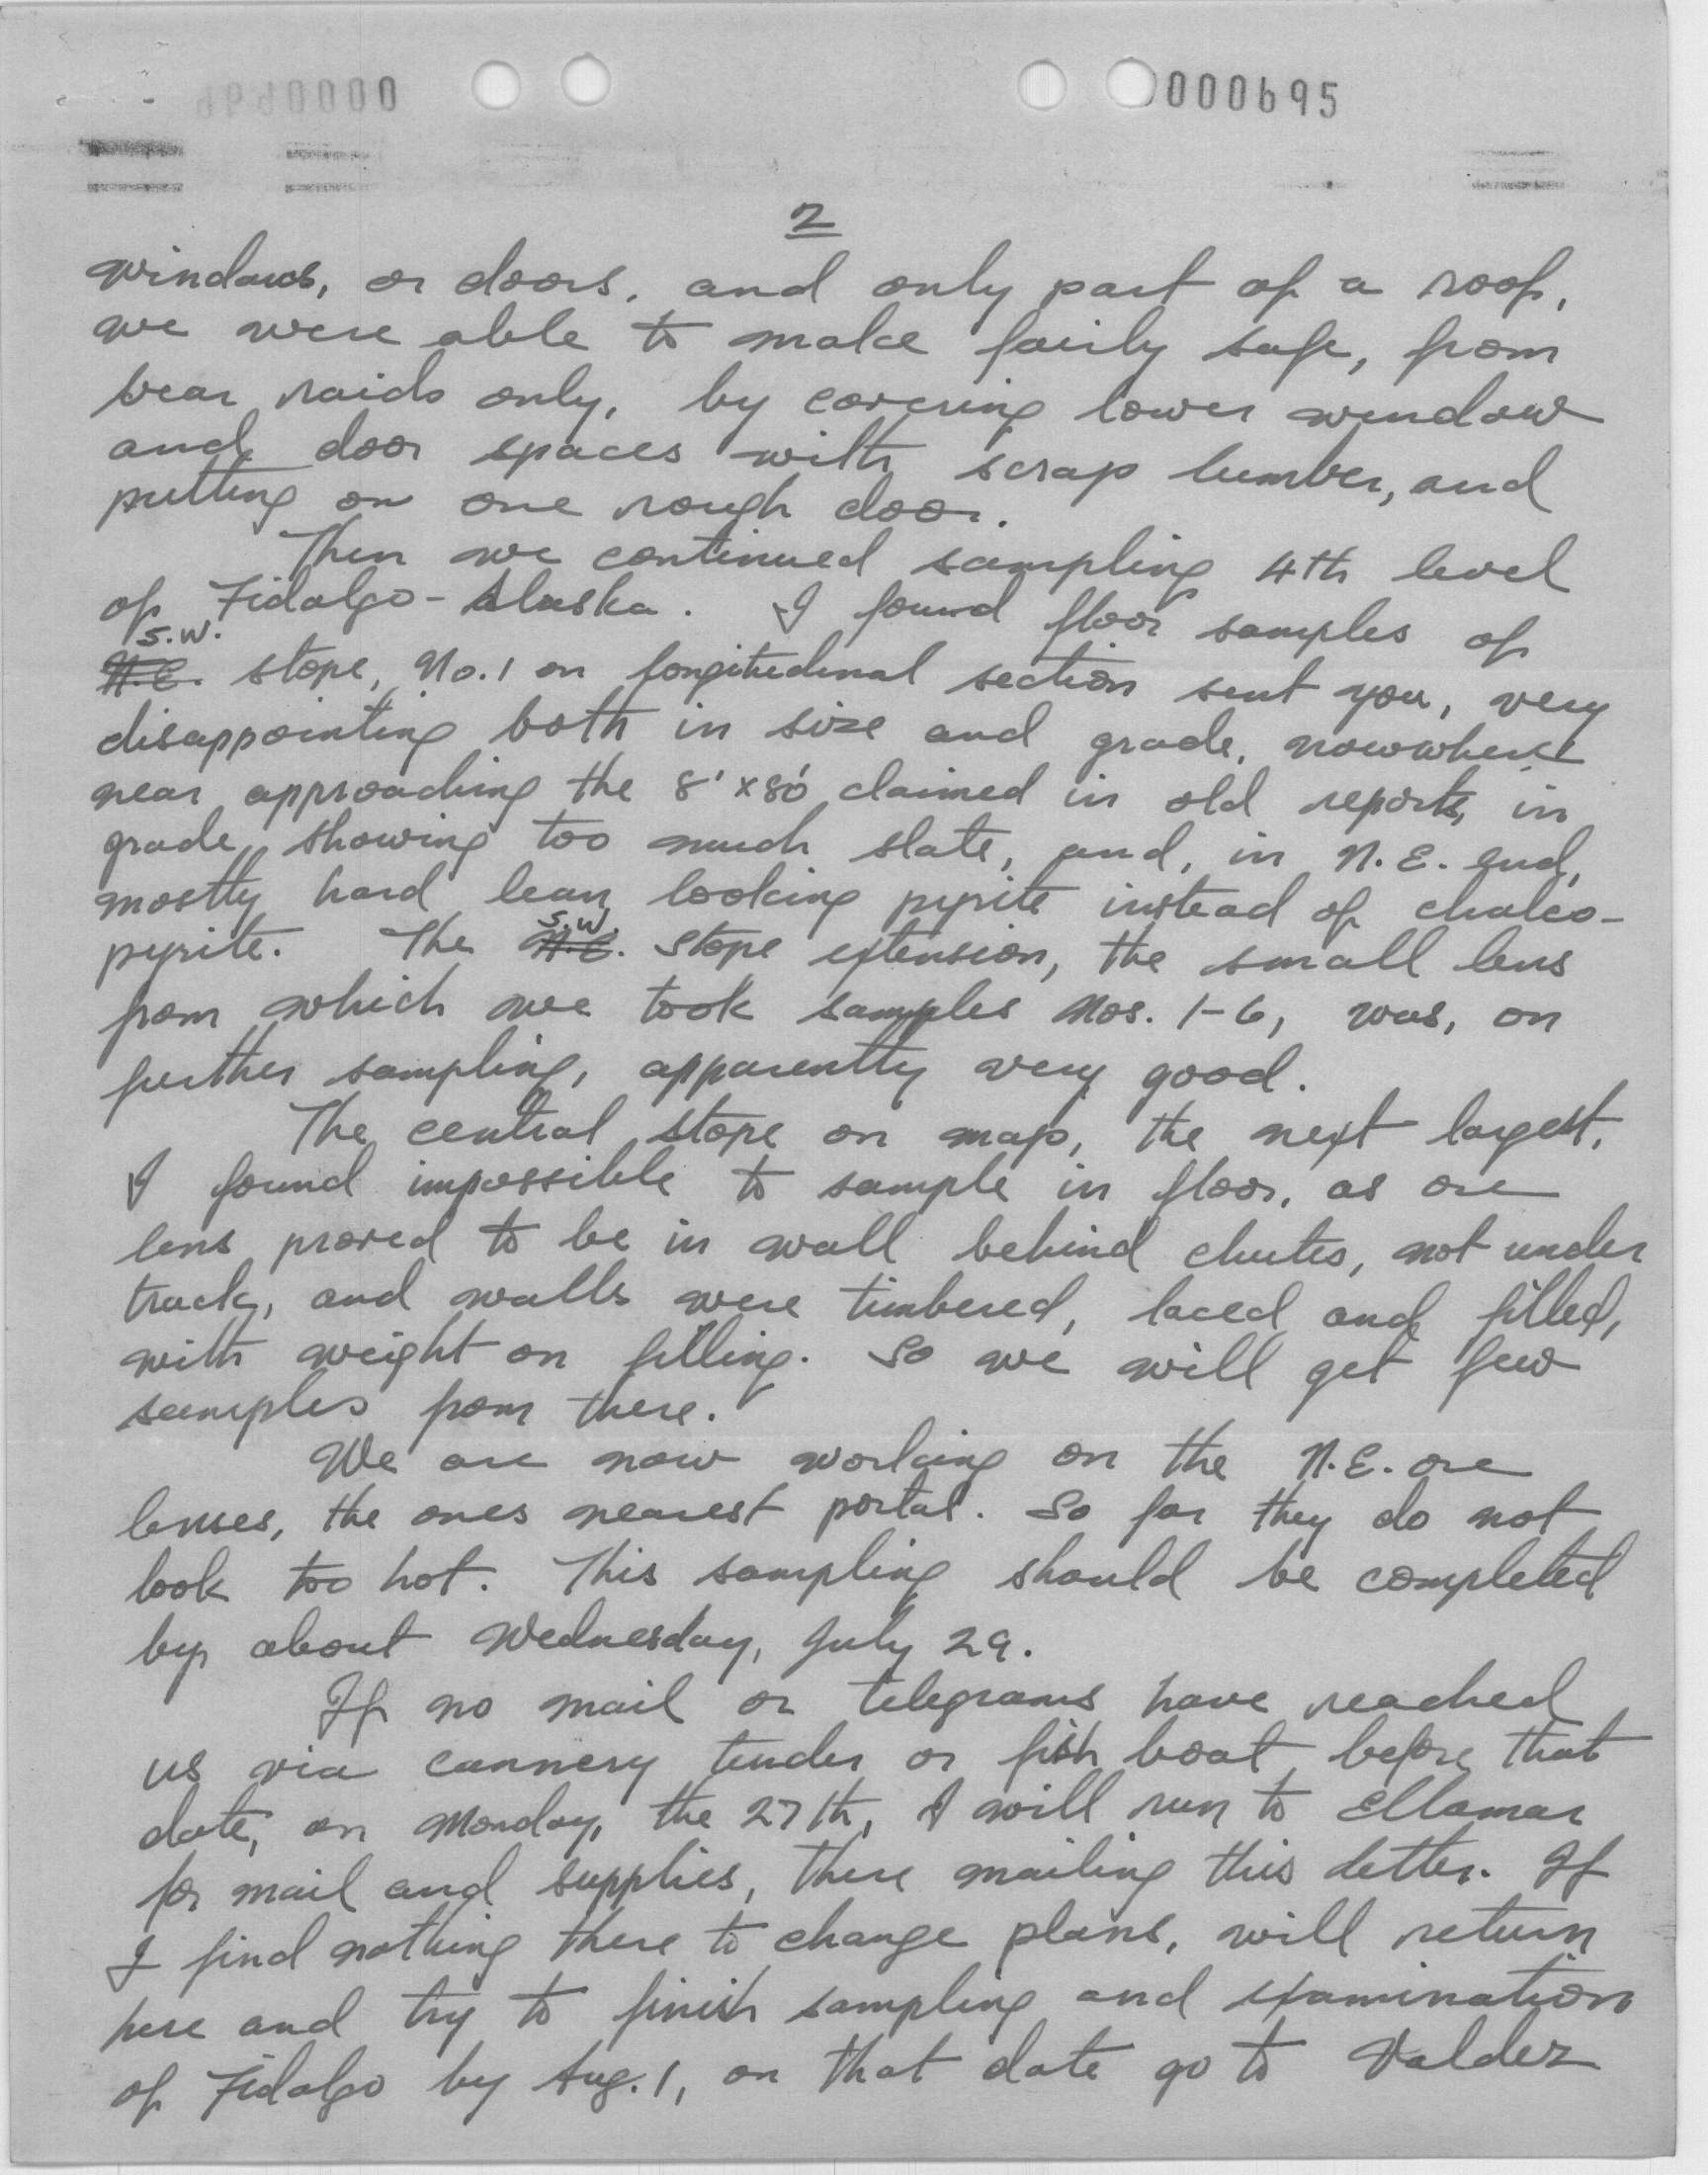 000695
2
windows, or doors, and only part of a roof,
we were able to make fairly safe, from
bear raids only, by covering lower window
and door spaces with scrap lumber, and
putting on one rough door.
Then we continued sampling 4th level
of Fidalgo-Alaska. I found floor samples of
S.W.
N.E. stope, No. 1 on longitudinal section sent you, very
disappointing both in size and grade, nowwhere
near approaching the 8' x 80' claimed in old reports, in
grade showing too much slate, and, in N.E. end,
mostly hard lean looking pyrite instead of chalco-
pyrite. The N.E. S.W. stope extension, the small lens
from which we took samples Nos. 1-6, was, on
further sampling, apparently very good.
The central stope on map, the next largest,
I found impossible to sample in floor, as ore
lens proved to be in wall behind chutes, not under
track, and walls were timbered, laced and filled,
with weight on filling. So we will get few
samples from there.
We are now working on the N.E. ore
lenses, the ones nearest portal. So far they do not
look too hot. This sampling should be completed
by about Wednesday, July 29.
If no mail or telegrams have reached
us via cannery tender or fish boat before that
date, on Monday, the 27th, I will run to Ellamar
for mail and supplies, there mailing this letter. If
I find nothing there to change plans, will return
here and try to finish sampling and examination
of Fidalgo by Aug. 1, on that date go to Valdez